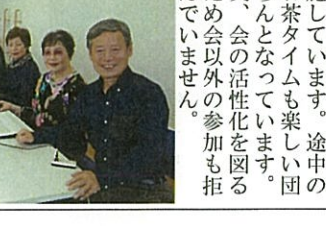 施しています。途中の
茶タイムも楽しい団
らんとなっています。
、会の活性化を図る
め会以外の参加も拒
でいません。